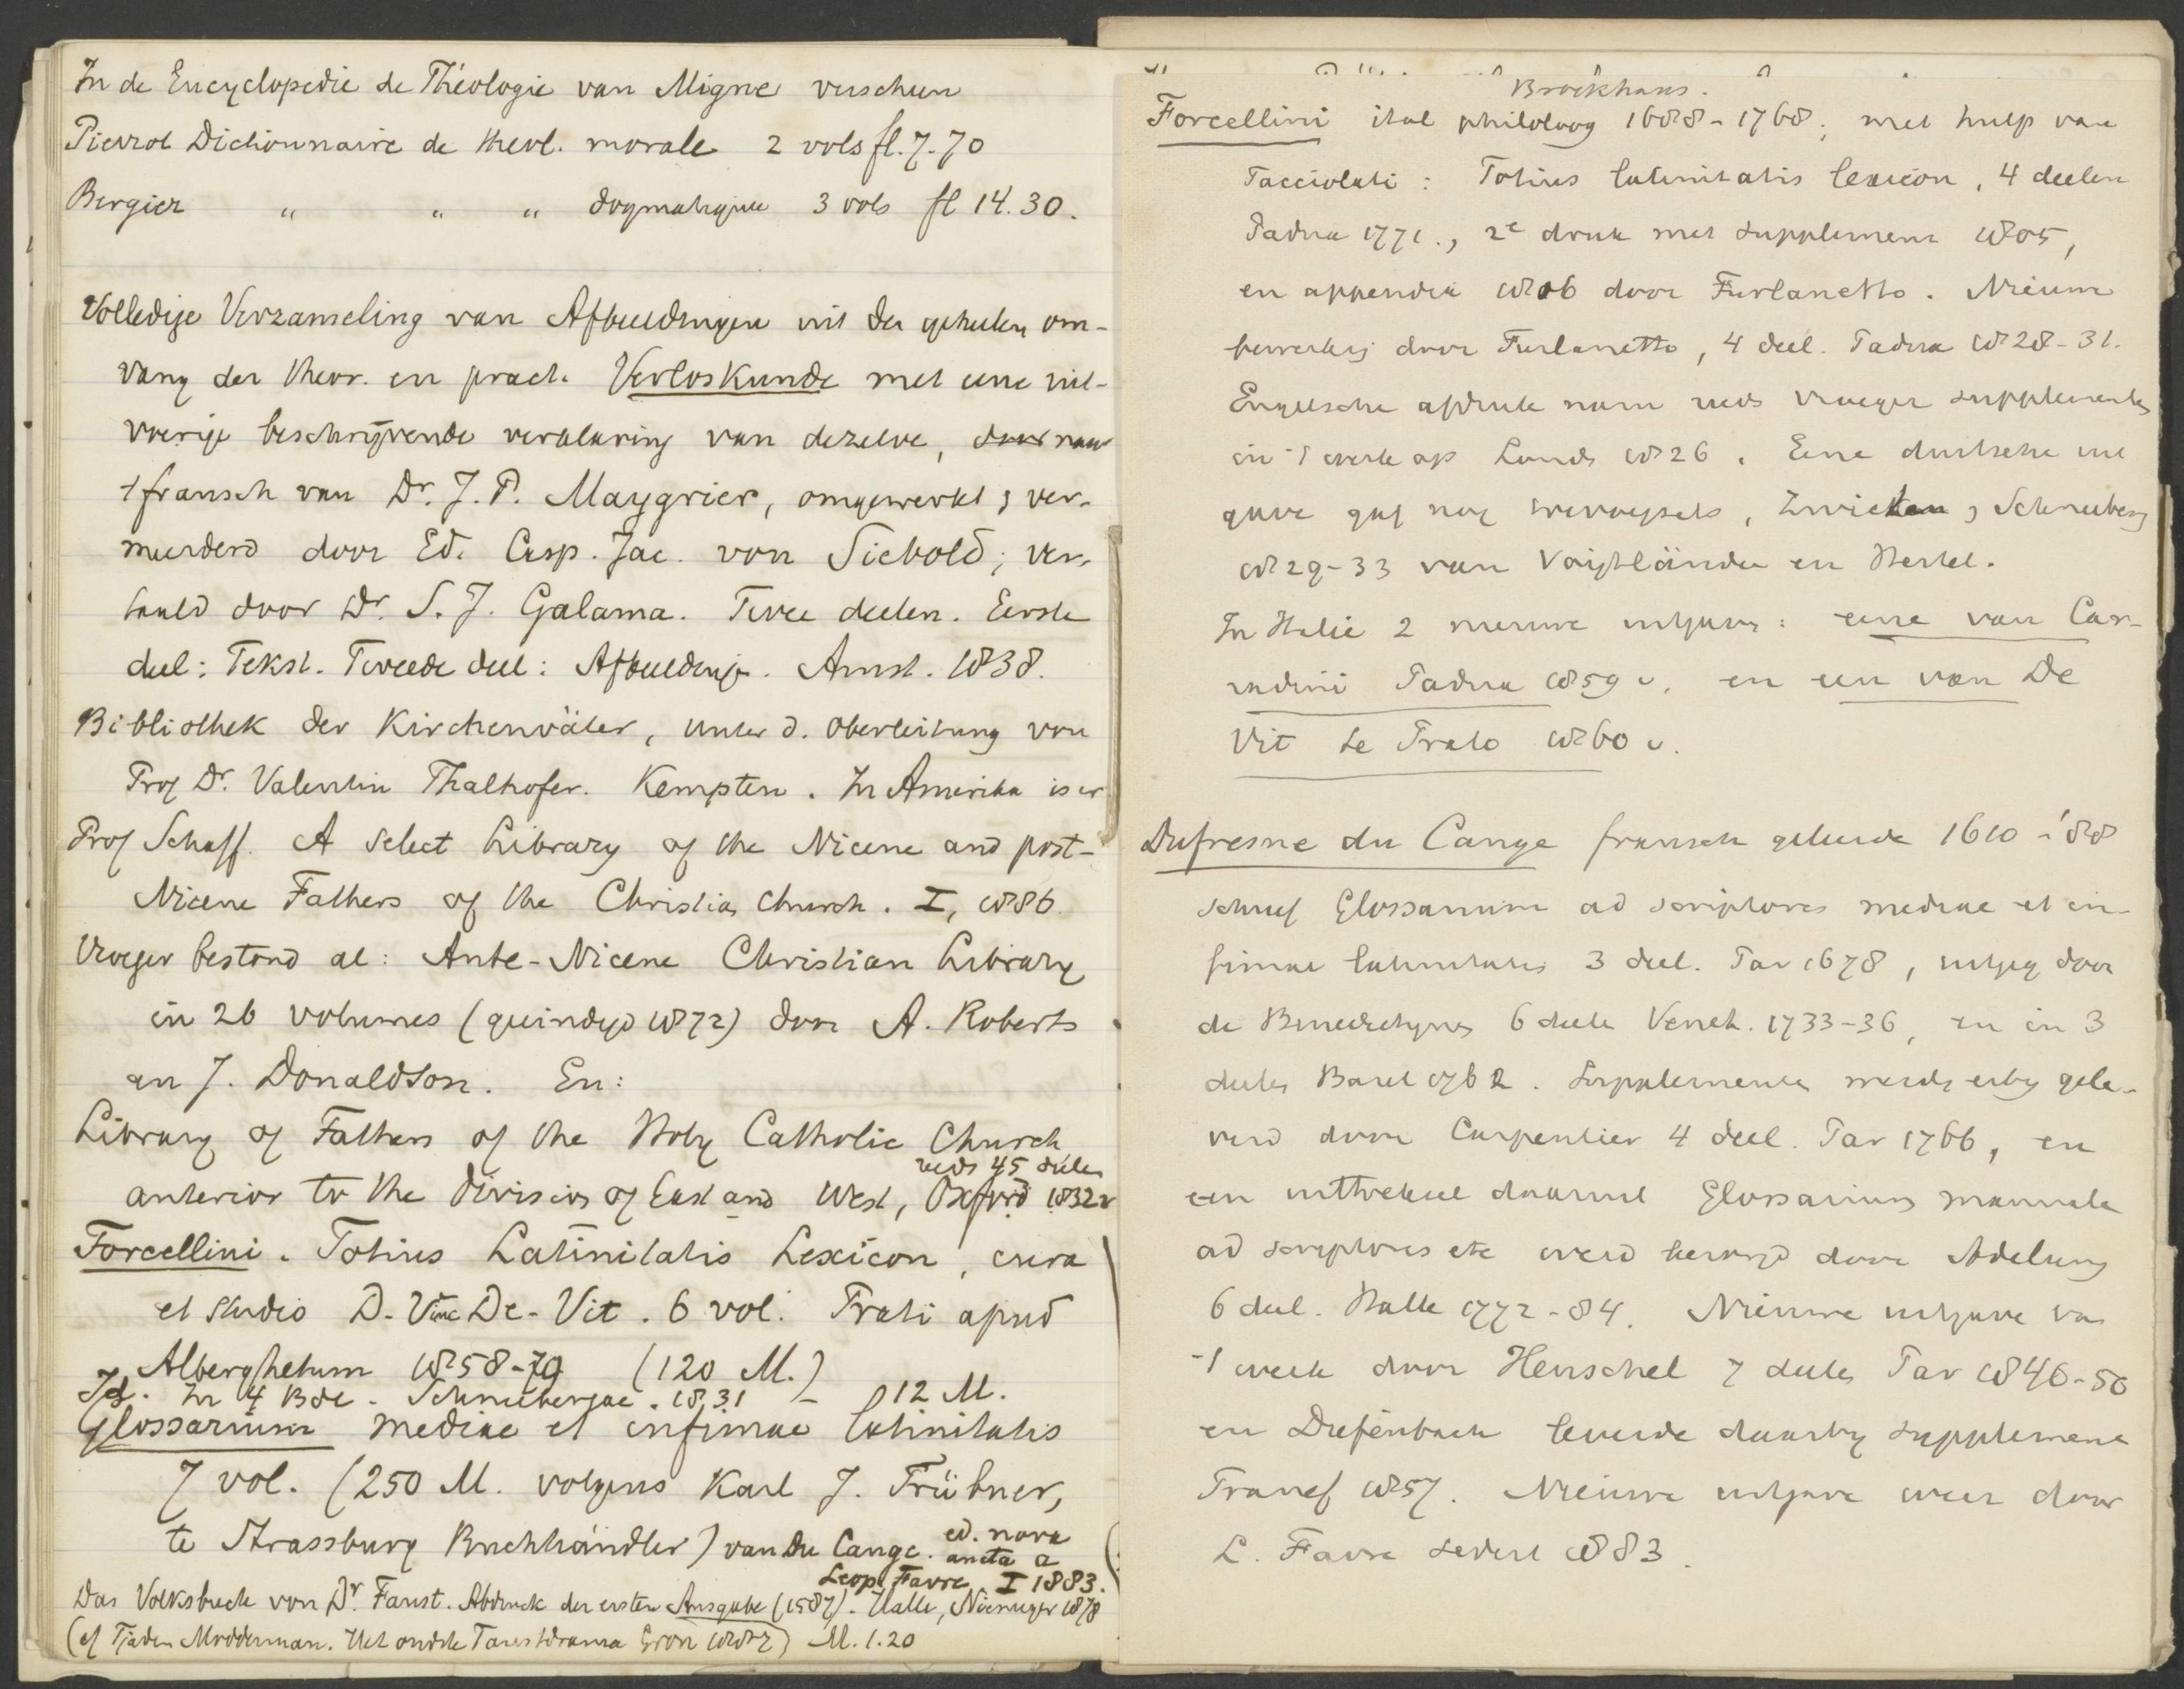 In de Encyclopedie de Théologie van Migne verschen
Pierrot Dictionnaire de theol. morale 2 vols fl. 7.70
Bergier " " " dogmatique 3 vols fl 14.30.
Volledige Verzameling van Afbeeldingen uit den geheelen om-
vang der theor. en pract. Verloskunde met eene uit-
voerige beschrijvende verklaring van dezelve, door naar
't fransch van Dr. J. P. Maygrier, omgewerkt & ver-
meerderd door Ed. Casp. Jac. von Siebold; ver-
taald door Dr. S. J. Galama. Twee deelen. Eerste
deel: Tekst. Tweede deel: Afbeeldingn. Amst. 1838.
Bibliothek der Kirchenväter, unter d. Oberleitung von
Prof Dr. Valentin Thalhofer. Kempten. In Amerika is er
Prof Schaff. A select Library of the Nicene and post-
Nicene Fathers of the Christian Church. I, 1886.
Vroeger bestond al: Ante-Nicene Christian Library
in 26 volumes (geëindigd 1872) door A. Roberts
en J. Donaldson. En:
Library of Fathers of the Holy Catholic Church
reeds 45 deelen
anterior to the division of East and West, Oxford 1832 v
Forcellini. Totius Latinitatis Lexicon, cura
et studio D. Vinc De-Vit. 6 vol. Prati apud
Alberghetum 1858-79 (120 M.)
Id. In 4 Bde. Schneebergae. 1831 - 112 M.
Glossarium mediae et infimae latinitatis
7 vol. (250 M. volgens Karl J. Trübner,
te Strassburg Buchhändler) van Du Cange. ed. nova
aucta a
Leop. Favre I 1883.
Das Volksbuch von Dr. Faust. Abdruck der ersten Ausgabe (1587). Halle, Niemeyer 1878
(cf Tjaden Modderman. Het oudste Faustdrama Gron 1882) M. 1.20
Brockhaus.
Forcellini ital philoloog 1688-1768; met hulp van
Facciolati: Totius latinitatis lexicon, 4 deelen
Padua 1771., 2e druk met supplement 1805,
en appendix 1816 door Furlanetto. Nieuwe
bewerking door Furlanetto, 4 deel. Padua 1828-31.
Engelsche afdruk nam reeds vroeger supplementen
in 't werk op Londn 1826. Eene duitsche uit
gave gaf nog, Zwickau & Schneeberg
1829-33 van Voigtländer en Hertel.
In Italie 2 nieuwe uitgaven: eene van Cor-
radini Padua 1859 v. en een van De
Vit te Prato 1860 v.
Dufresne du Cange fransch geleerde 1610-'88
schreef Glossarium ad scriptores mediae et in-
fimae latinitatis 3 deel. Par 1678, uitgeg door
de Benedictijnen 6 deele Venet. 1733-36, en in 3
deelen Bazel 1762. Supplementen werdn erbij gele-
verd door Carpentier 4 deel. Par 1766, en
een uittreksel daaruit Glossarium manuale
ad scriptores etc werd bezorgd door Adelung
6 deel. Halle 1772-84. Nieuwe uitgave van
't werk door Henschel 7 deelen Par 1840-50
en Diefenbach leverde daarbij supplement
Francf 1857. Nieuwe uitgave weer door
L. Favre sedert 1883.